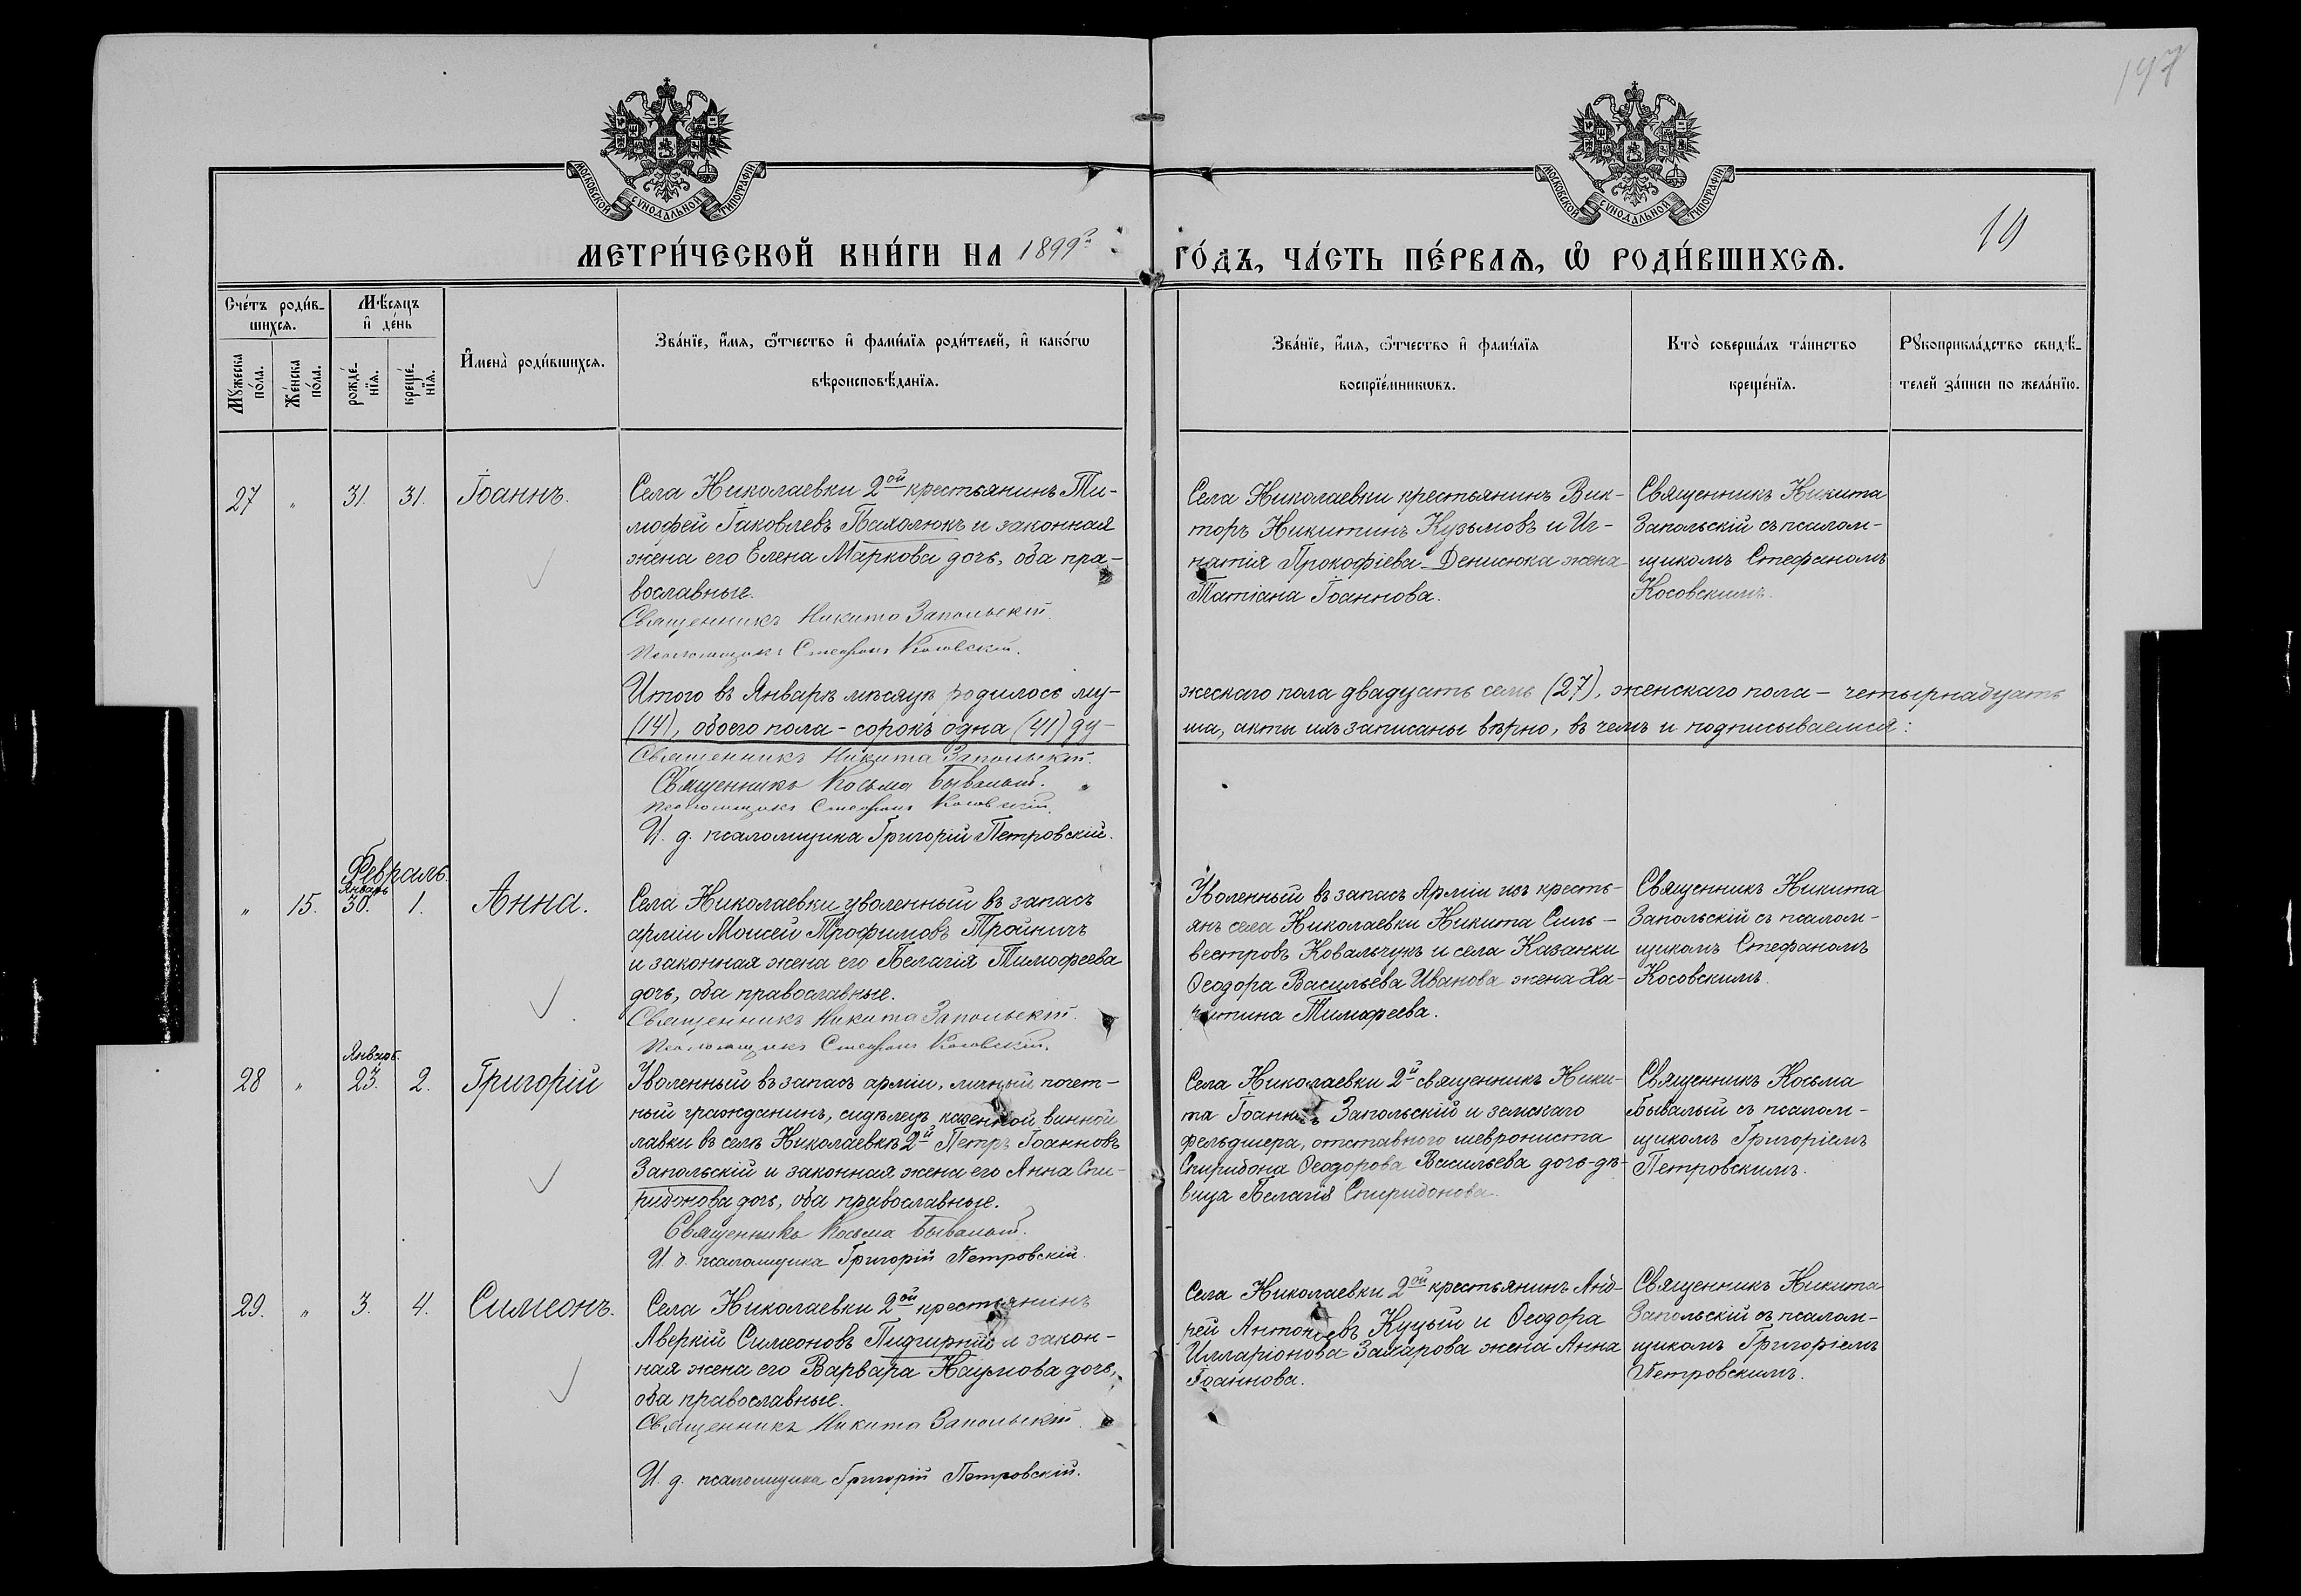 197
МОСКОВСКОЙ СѴНОДАЛЬНОЙ ТИПОГРАФІИ
МОСКОВСКОЙ СѴНОДАЛЬНОЙ ТИПОГРАФІИ
10
МЕТРИ́ЧЕСКОЙ КНИ́ГИ НА 1899й
ГО́ДЪ, ЧА́СТЬ ПЕ́РВАѦ, Ѽ РОДИ́ВШИХСѦ.
Сче́тъ роди́в-
шихсѧ.
Мꙋжеска по́ла.
Же́нска по́ла.
Мѣ́сѧцъ
и҆ де́нь
рожде́-нїѧ.
креще́-нїѧ.
И҆мена̀ роди́вшихсѧ.
Зва́нїе, и҆́мѧ, ѻ҆́тчество и҆ фами́лїѧ роди́телей, и҆ како́гѡ
вѣроисповѣ́данїѧ.
Зва́нїе, и҆́мѧ, ѻ҆́тчество и҆ фами́лїѧ
воспрїе́мникѡвъ.
Кто̀ соверша́лъ та́инство
креще́нїѧ.
Рꙋкоприкла́дство свидѣ́-
телей за́писи по жела́нїю.
27 " 31. 31. Іоаннъ.
Села Николаевки 2ой крестьянинъ Ти-
мофей Іаковлевъ Пахолюкъ и законная
жена его Елена Маркова дочь, оба пра-
вославные.
Священникъ Никита Запольскій.
Псаломщикъ Стефанъ Косовскій.
Села Николаевки крестьянинъ Вик-
торъ Никитинъ Кузьмовъ и Иг-
натія Прокофіева Денисюка жена
Татіана Іоаннова.
Священникъ Никита
Запольскій съ псалом-
щикомъ Стефаномъ
Косовскимъ.
Итого въ Январѣ мѣсяцѣ родилось му-
жескаго пола двадцать семь (27), женскаго пола - четырнадцать
(14), обоего пола - сорокъ одна (41) ду-
ша, акты ихъ записаны вѣрно, въ чемъ и подписываемся:
Священникъ Никита Запольскій.
Священникъ Косьма Бывалый.
Псаломщикъ Стефанъ Косовскій.
И. д. псаломщика Григорій Петровскій.
Февраль.
Январь
" 15. 30. 1. Анна.
Села Николаевки уволенный въ запасъ
арміи Моисей Трофимовъ Тройничъ
и законная жена его Пелагія Тимофеева
дочь, оба православные.
Священникъ Никита Запольскій.
Псаломщикъ Стефанъ Косовскій.
Уволенный въ запасъ Арміи изъ кресть-
янъ села Николаевки Никита Силь-
вестровъ Ковальчукъ и села Казанки
Ѳеодора Васильева Иванова жена Ха-
ритина Тимофеева.
Священникъ Никита
Запольскій съ псалом-
щикомъ Стефаномъ
Косовскимъ.
Январь.
28 " 23. 2. Григорій
Уволенный въ запасъ арміи, личный почет-
ный гражданинъ, сидѣлецъ казенной винной
лавки въ селѣ Николаевкѣ 2й Петръ Іоанновъ
Запольскій и законная жена его Анна Спи-
ридонова дочь, оба православные.
Священникъ Косьма Бывалый.
И. д. псаломщика Григорій Петровскій.
Села Николаевки 2й священникъ Ники-
та Іоанновъ Запольскій и земскаго
фельдшера, отставного шеврониста
Спиридона Ѳеодорова Васильева дочь-дѣ-
вица Пелагія Спиридонова.
Священникъ Косьма
Бывалый съ псалом-
щикомъ Григоріемъ
Петровскимъ.
29. " 3. 4. Симеонъ.
Села Николаевки 2ой крестьянинъ
Аверкій Симеоновъ Пидгирный и закон-
ная жена его Варвара Наумова дочь,
оба православные.
Священникъ Никита Запольскій.
И. д. псаломщика Григорій Петровскій.
Села Николаевки 2ой крестьянинъ Анд-
рей Антоніевъ Куцый и Ѳеодора
Илларіонова Захарова жена Анна
Іоаннова.
Священникъ Никита
Запольскій съ псалом-
щикомъ Григоріемъ
Петровскимъ.